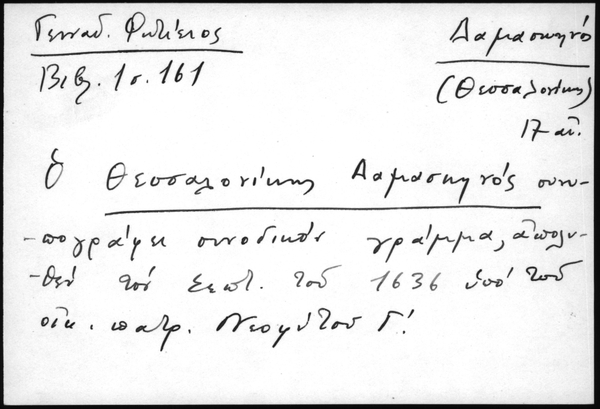 Γενναδ. Φωτιάδος
Βιβλ. 1 σ. 161
Δαμασκηνός
(Θεσσαλονίκης)
17 αἰ.
Ὁ Θεσσαλονίκης Δαμασκηνός συνυ-
-πογράφει συνοδικόν γράμμα, ἀπολυ-
-θέν τόν Σεπτ. τοῦ 1636 ὑπό τοῦ
οἰκ. πατρ. Νεοφύτου Γ!